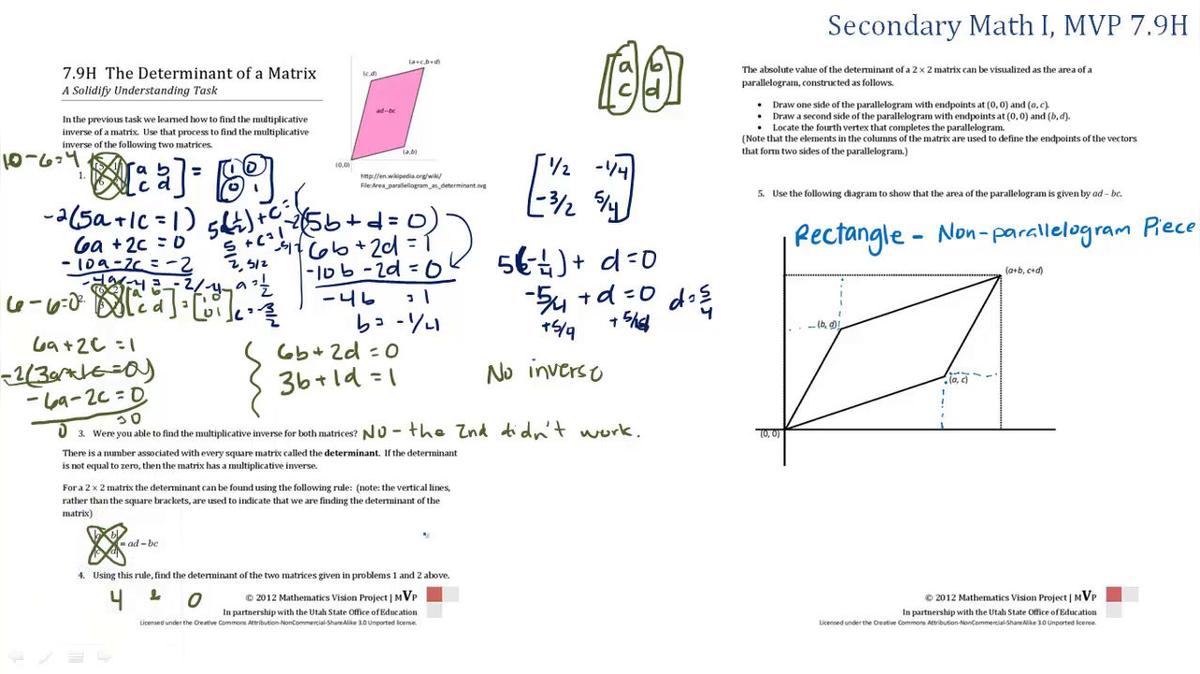 Secondary Math I, MVP 7.9H
7.9H The Determinant of a Matrix
A Solidify Understanding Task
In the previous task we learned how to find the multiplicative
inverse of a matrix. Use that process to find the multiplicative
inverse of the following two matrices.
(c,d)
(a+c,b+d)
ad-bc
(a,b)
(0,0)
http://en.wikipedia.org/wiki/
File:Area_parallellogram_as_determinant.svg
[a b
c d]
10-6=4
1.
[a b
c d] = [1 0
0 1]
-2(5a+1c=1)
6a+2c=0
-10a-2c=-2
a=1/2
c=-3/2
-2(5b+d=0)
6b+2d=1
-10b-2d=0
-4b =1
b=-1/4
[1/2 -1/4
-3/2 5/4]
5(-1/4)+ d=0
-5/4 + d=0 d=5/4
6-6=0
2.
6a+2c=1
-2(3a+1c=0)
-6a-2c=0
6b+2d=0
3b+1d=1
No inverse
3. Were you able to find the multiplicative inverse for both matrices? NO - the 2nd didn't work.
There is a number associated with every square matrix called the determinant. If the determinant
is not equal to zero, then the matrix has a multiplicative inverse.
For a 2 × 2 matrix the determinant can be found using the following rule: (note: the vertical lines,
rather than the square brackets, are used to indicate that we are finding the determinant of the
matrix)
= ad - bc
4. Using this rule, find the determinant of the two matrices given in problems 1 and 2 above.
4 & 0
© 2012 Mathematics Vision Project | MVP
In partnership with the Utah State Office of Education
Licensed under the Creative Commons Attribution-NonCommercial-ShareAlike 3.0 Unported license.
The absolute value of the determinant of a 2 × 2 matrix can be visualized as the area of a
parallelogram, constructed as follows.
• Draw one side of the parallelogram with endpoints at (0, 0) and (a, c).
• Draw a second side of the parallelogram with endpoints at (0, 0) and (b, d).
• Locate the fourth vertex that completes the parallelogram.
(Note that the elements in the columns of the matrix are used to define the endpoints of the vectors
that form two sides of the parallelogram.)
5. Use the following diagram to show that the area of the parallelogram is given by ad - bc.
Rectangle - Non-parallelogram Piece
(a+b, c+d)
(b, d)
(a, c)
(0, 0)
© 2012 Mathematics Vision Project | MVP
In partnership with the Utah State Office of Education
Licensed under the Creative Commons Attribution-NonCommercial-ShareAlike 3.0 Unported license.